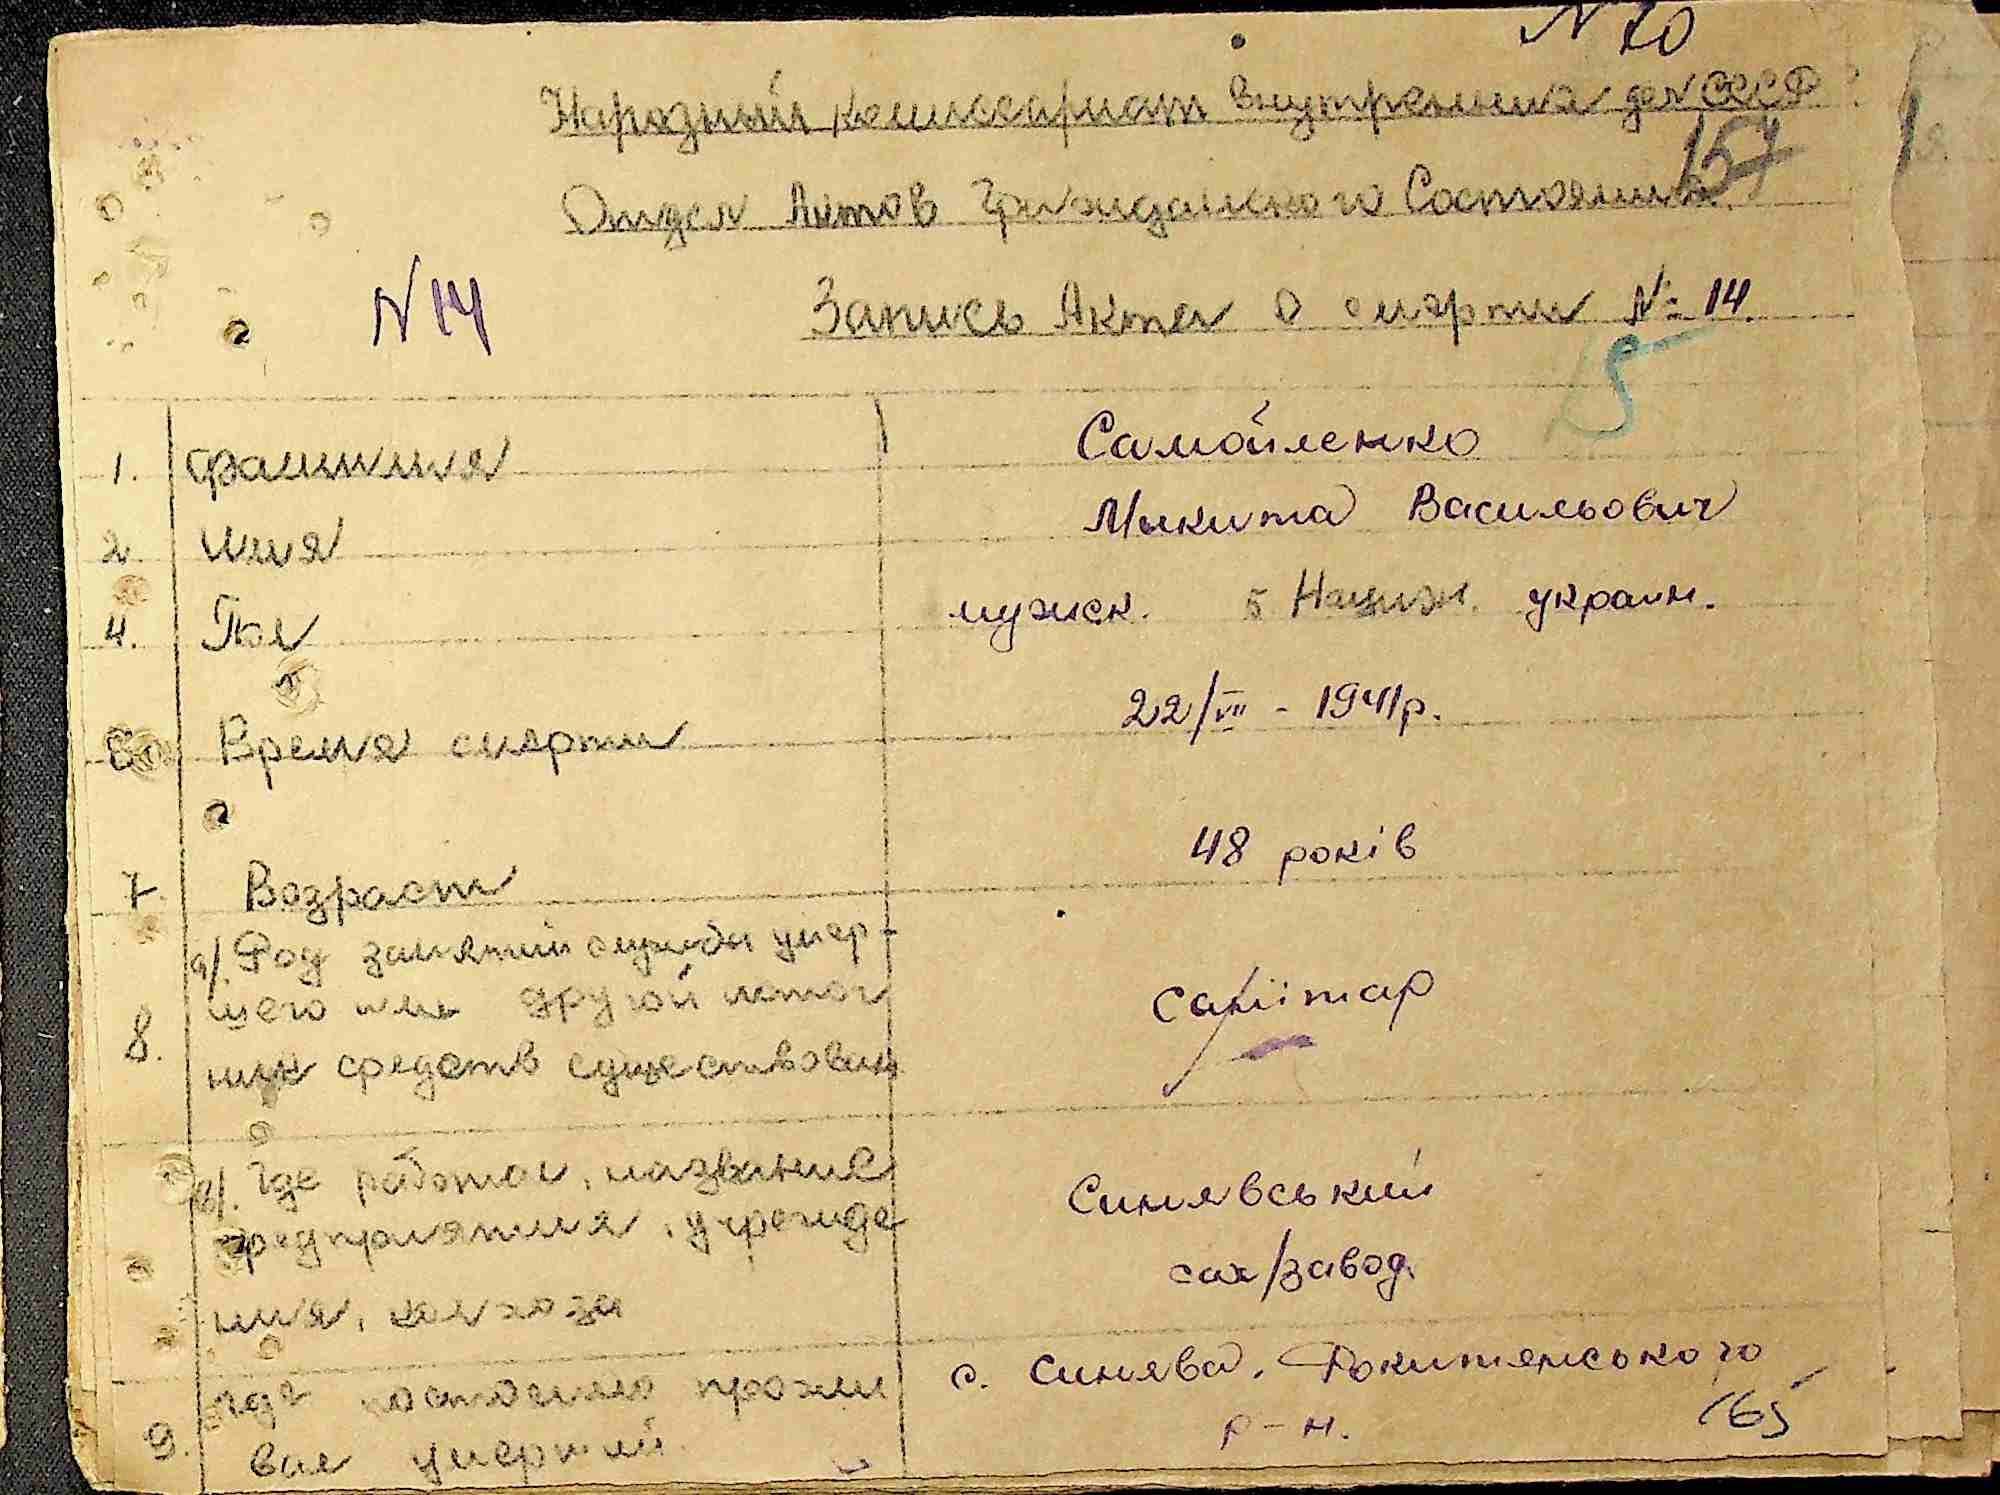 N 70
Народный комиссариат внутренних дел СССР
157
Отдел Актов Гражданского Состояния
N 14
Запись Акта о смерти № 14
5
1. Фамилия Самойленко
2. Имя Мыкита Васильович
4. Пол мужск. 5 Национ. украин.
6 Время смерти 22/VII - 1941р.
7. Возраст 48 років
а/. Род занятий службы умер-
шего или другой источ
8. ник средств существован санітар
в/. Где работал, название Синявський
предприятия, учрежде сах/завод.
ния, колхоза
9. где постоянно прожи с. Синява. Рокитянського
вал умерший р-н.
165